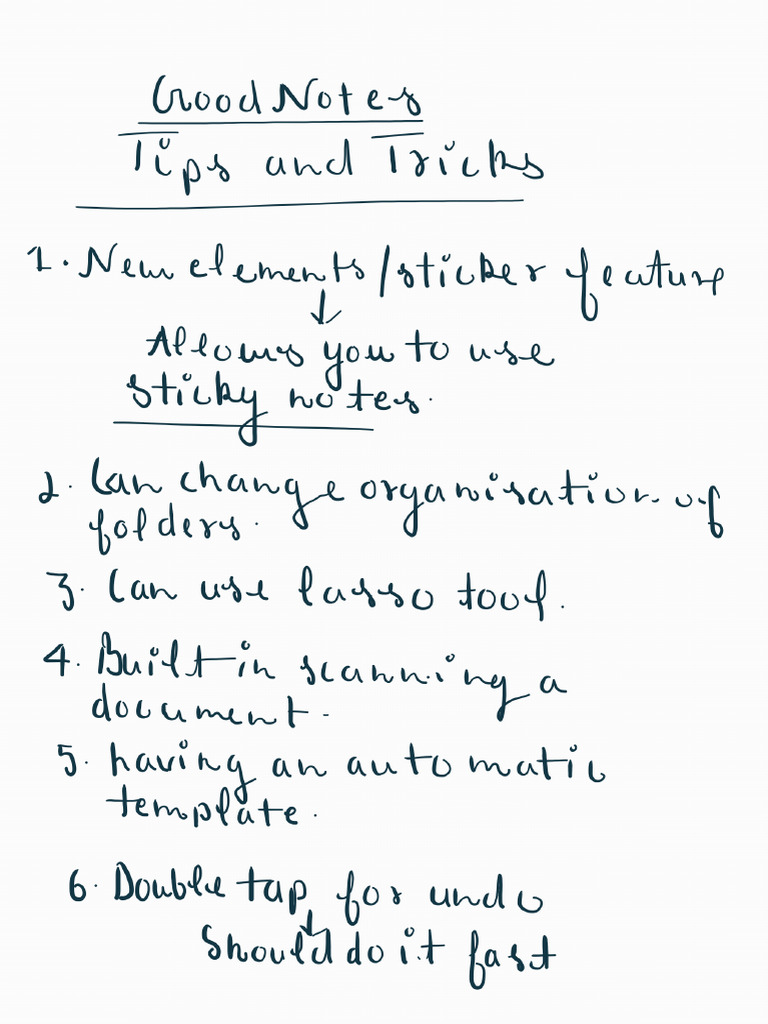 GoodNotes
Tips and Tricks
1. New elements/sticker feature
↓
Allows you to use
sticky notes.
2. Can change organisation of
folders.
3. Can use lasso tool.
4. Built-in scanning a
document.
5. having an automatic
template.
6. Double tap for undo
↓
Should do it fast